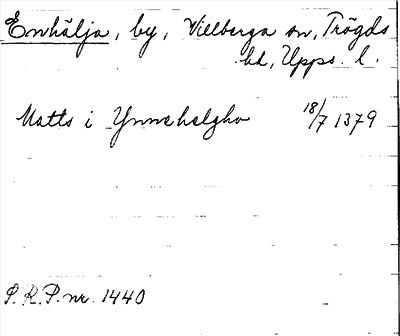 Enhälja, by, Villberga sn, Trögds
hd, Upps. l.
Matts i Ynnehelgho 18/7 1379
S.R.P. nr. 1440